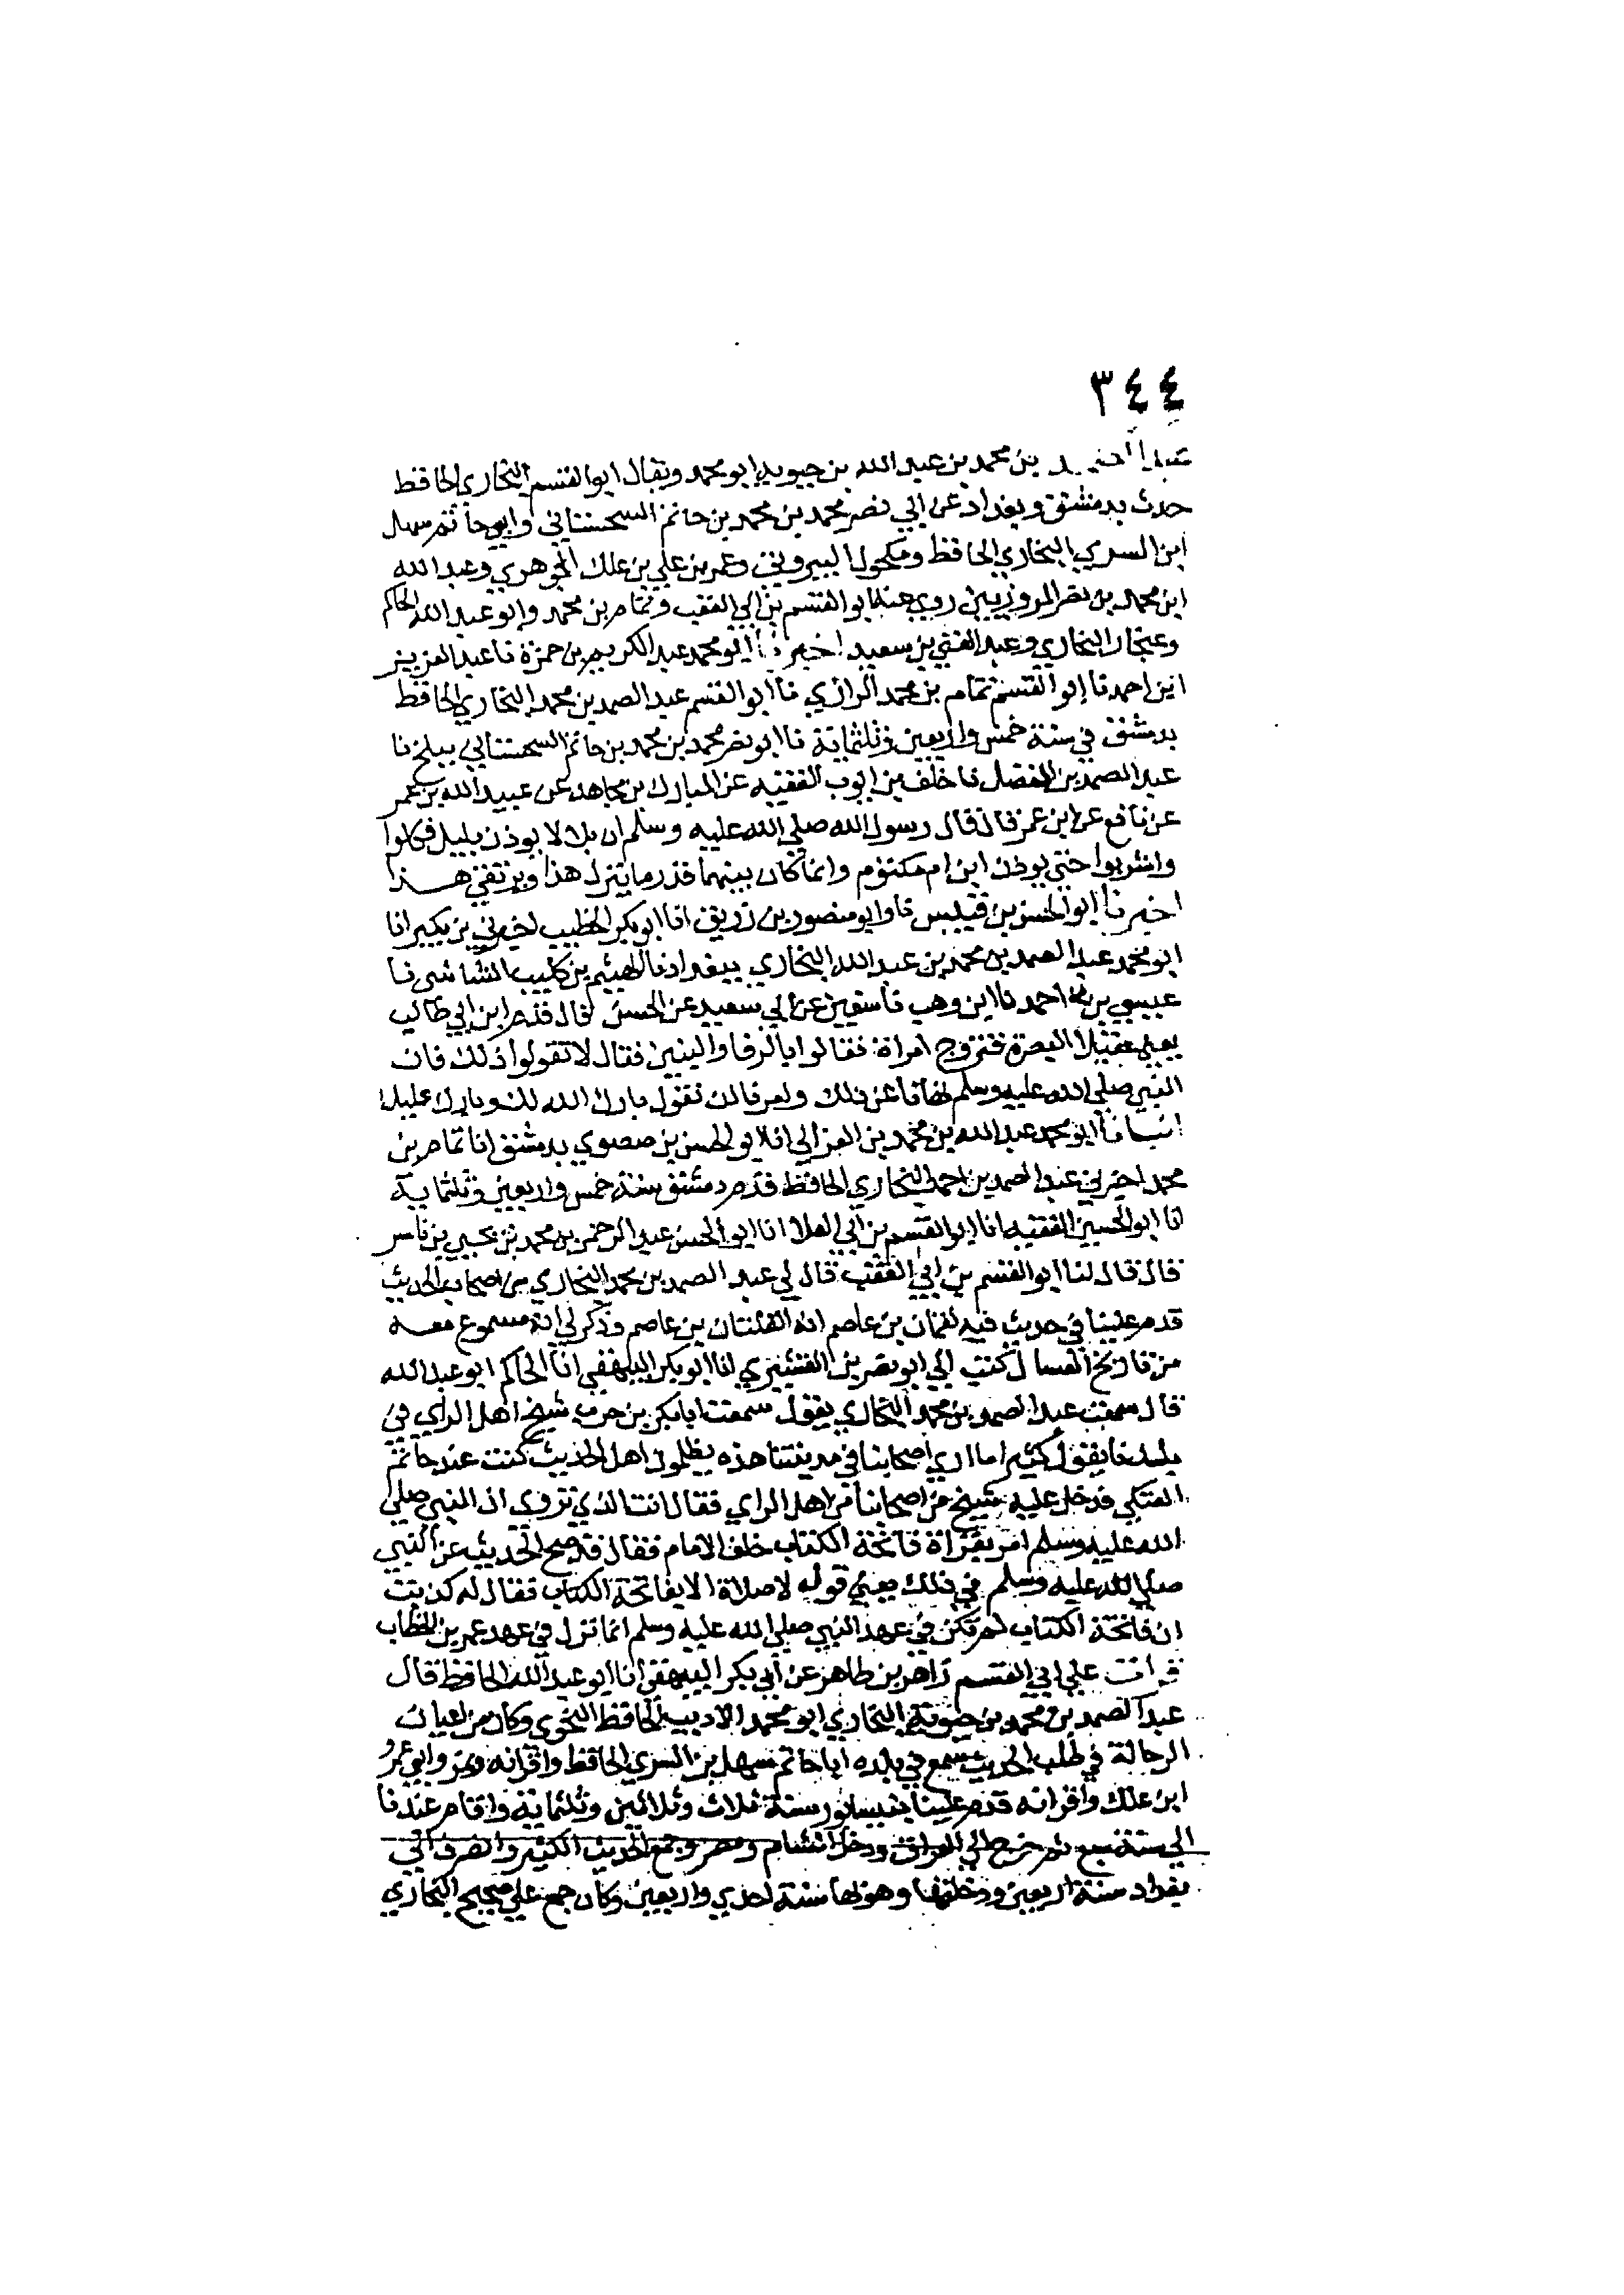 ٣٤٤
بن محمد بن عبد الله بن حيويه ابو محمد ويقال ابو القسم البخاري الحافظ
حدث بدمشق وبغداد عن ابي نصر محمد بن محمد بن حاتم السجستاني وابو حاتم سهل
ابن السري البخاري الحافظ ومكحول البيروتي وعمر بن علي بن علك الجوهري وعبد الله
ابن محمد بن نصر المروزيين روى عنه ابو القسم بن ابي العقب وتمام بن محمد وابو عبد الله الحاكم
وغنجار البخاري وعبد الغني بن سعيد اخبرنا ابو محمد عبد الكريم بن حمزة نا عبد العزيز
ابن احمد نا ابو القسم تمام بن محمد الرازي نا ابو القسم عبد الصمد بن محمد البخاري الحافظ
بدمشق في سنة خمس واربعين وثلثماية نا ابو نصر محمد بن محمد بن حاتم السجستاني ببلخ نا
عبد الصمد بن الفضل نا خلف بن ايوب الفقيه عن المبارك بن مجاهد عن عبيد الله بن عمر
عن نافع عن ابن عمر قال قال رسول الله صلي الله عليه وسلم ان بلالا يوذن بليل فكلوا
واشربوا حتي يوذن ابن ام مكتوم وانما كان بينهما قدر ما ينزل هذا ويرتقي هذا
اخبرنا ابو الحسن بن قبيس نا وابو منصور بن زريق انا ابو بكر الخطيب اخبرني بن بكير انا
ابو محمد عبد الصمد بن محمد بن عبد الله البخاري ببغداد نا الهيثم بن كليب الشاشي نا
عيسي بن احمد نا ابن وهب نا سفين عن ابي سعيد عن الحسن قال قدم ابن ابي طالب
يعني عقيلا البصرة فتزوج امراة فقالوا بالرفا والبنين فقال لا تقولوا ذلك فان
النبي صلي الله عليه وسلم نهانا عن ذلك وامرنا ان نقول بارك الله لك وبارك عليك
انبانا ابو محمد عبد الله بن محمد بن الغزالي انا ابو الحسن بن صصري بدمشق انا تمام بن
محمد اخبرني عبد الصمد بن احمد البخاري الحافظ قدم دمشق سنة خمس واربعين وثلثماية
انا ابو الحسين الفقيه انا ابو القسم بن ابي العلا انا ابو الحسن عبد الرحمن بن محمد بن يحيي بن ياسر
قال قال لنا ابو القسم بن ابي العقب قال لي عبد الصمد بن محمد البخاري من اصحاب الحديث
قدم علينا في حديث فيه لقمان بن عاصم انه الفلتان بن عاصم وذكر لي انه مسموع معه
من تاريخ الغسال كتب الي ابو نصر بن القشيري انا ابو بكر البيهقي انا الحاكم ابو عبد الله
قال سمعت عبد الصمد بن محمد البخاري يقول سمعت ابا بكر بن حرب شيخ اهل الراي في
بلدنا يقول كثيرا ما اري اصحابنا في مدينتنا هذه يظلمون اهل الحديث كنت عند حاتم
العتكي فدخل عليه شيخ من اصحابنا من اهل الراي فقال انت الذي تروي ان النبي صلي
الله عليه وسلم امر بقراة فاتحة الكتاب خلف الامام فقال قد صح الحديث عن النبي
صلي الله عليه وسلم في ذلك يعني قوله لا صلاة الا بفاتحة الكتاب فقال له كذبت
ان فاتحة الكتاب لم تكن في عهد النبي صلي الله عليه وسلم انما نزل في عهد عمر بن الخطاب
قرات علي ابي القسم زاهر بن طاهر عن ابي بكر البيهقي انا ابو عبد الله الحافظ قال
عبد الصمد بن محمد بن حيويه البخاري ابو محمد الاديب الحافظ النحوي وكان من اعيان
الرحالة في طلب الحديث سمع في بلده ابا حاتم سهل بن السري الحافظ واقرانه وبمرو ابي عمرو
ابن علك واقرانه قدم علينا نيسابور سنة ثلاث وثلاثين وثلثماية واقام عندنا
الي سنة سبع ثم خرج الي العراق ودخل الشام ومصر وجمع الحديث الكثير وانصرف الي
بغداد سنة اربعين ودخلتها وهو بها سنة احدي واربعين وكان جمع علي صحيح البخاري